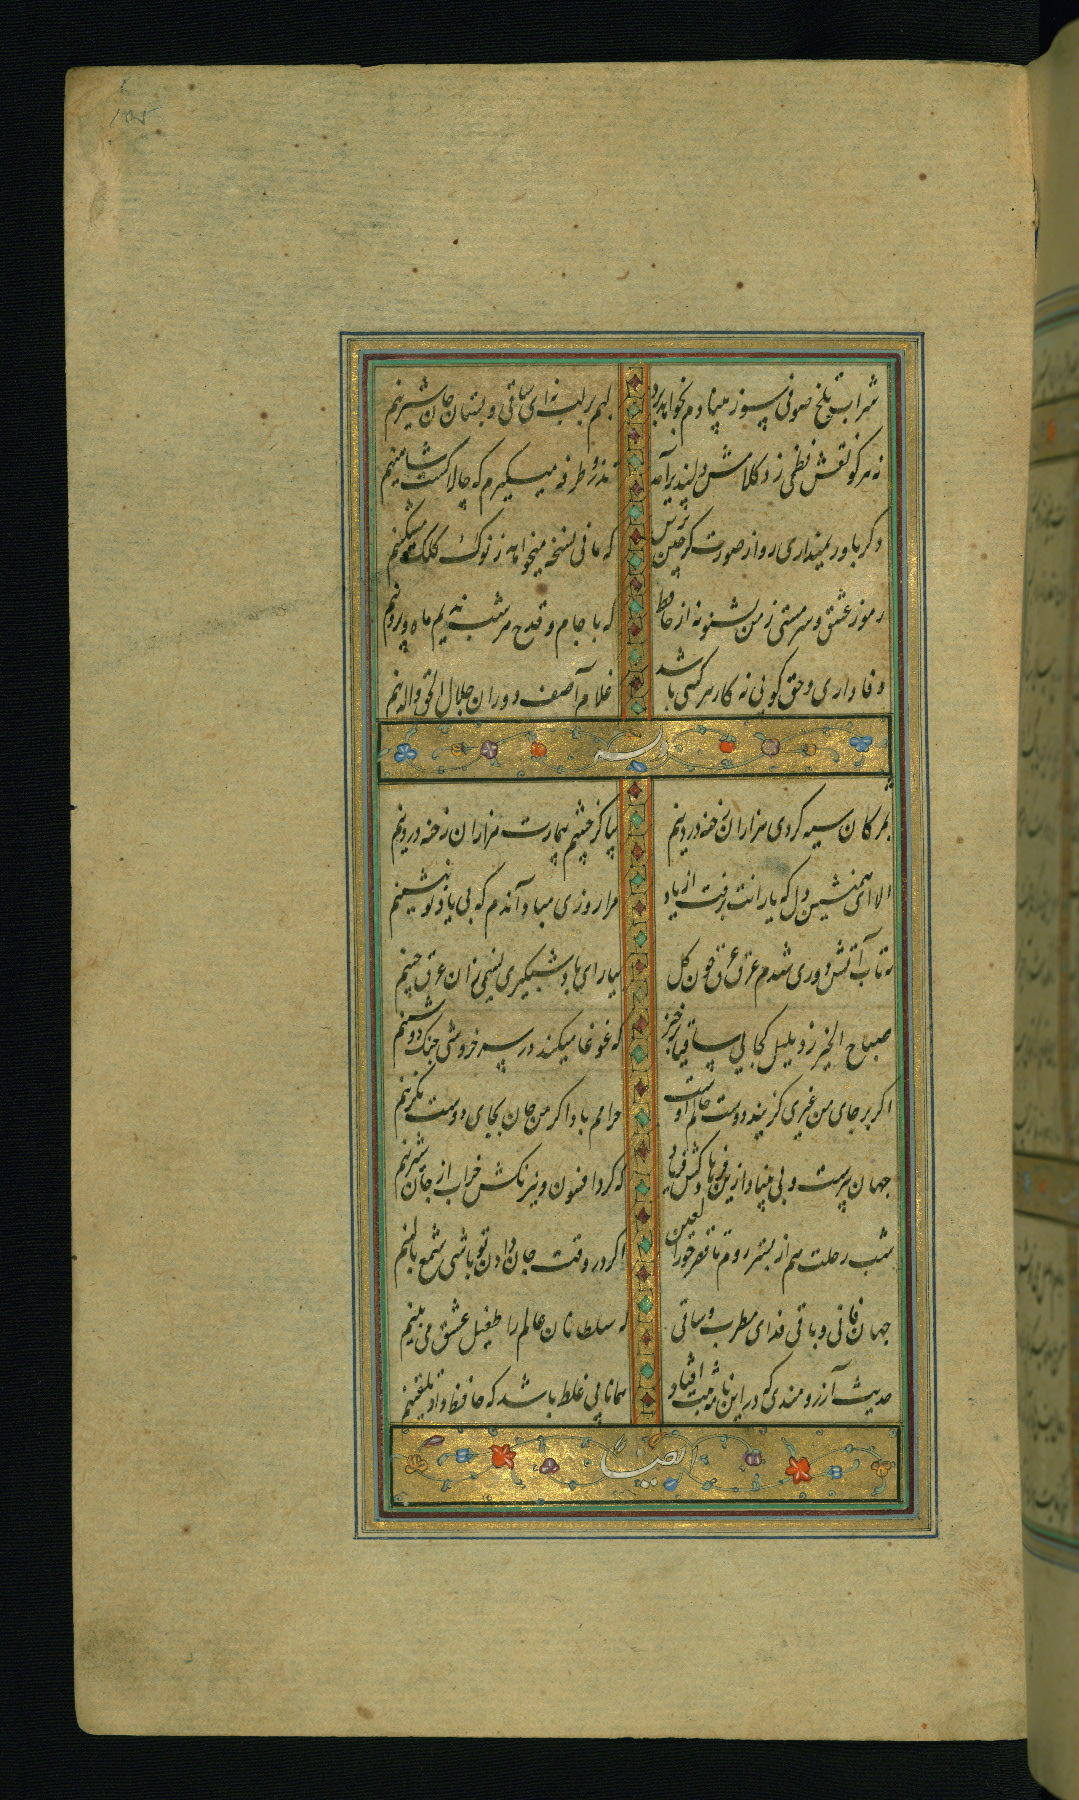 شراب تلخ صوفی سوز بنیادم بخواهد برد
لبم بر لب نه ای ساقی و بستان جان شیرینم
نه هر کو نقش نظمی زد کلامش دلپذیر آمد
تذرو طرفه میگیرم که چالاکست شاهینم
وگر باور نمیداری رو از صورتگر چین پرس
که مانی نسخه میخواهد ز نوک کلک مشکینم
رموز عشق و سرمستی ز من بشنو نه از حافظ
که با جام و قدح هر شب ندیم ماه و پروینم
وفاداری و حق کویی نه کار هر کسی باشد
غلام آصف دوران جلال الحق والدینم
وله
بمژکان سیه کردی هزاران رخنه در دینم
بیا کز چشم بیمارت هزاران رخنه در دینم
الا ای همنشین دل که یارانت برفت از یاد
مرا روزی مباد آندم که بی یاد تو بنشینم
ز تاب آتش دوری شدم غرق عرق چون کل
بیار ای باد شبگیری نسیمی زان عرق چینم
صباح الخیر زد بلبل کجایی ساقیا برخیز
که غوغا میکند در سر خروش چنک دوشینم
اکر بر جای من غیری کزیند دوست حاکم اوست
حرامم باد اکر من جان بجای دوست بکزینم
جهان پیرست و بی بنیاد ازین فرهادکش فریاد
که کرد افسون و نیرنکش خراب از جان شیرینم
شب رحلت هم از بستر روم تا قصر حورالعین
اکر در وقت جان دادن تو باشی شمع بالینم
جهان فانی و باقی فدای مطرب و ساقی
که سلطانان عالم را طفیل عشق می بینم
حدیث آرزومندی که در این نامه ثبت افتاد
همانا بی غلط باشد که حافظ داد تلقینم
ایضا